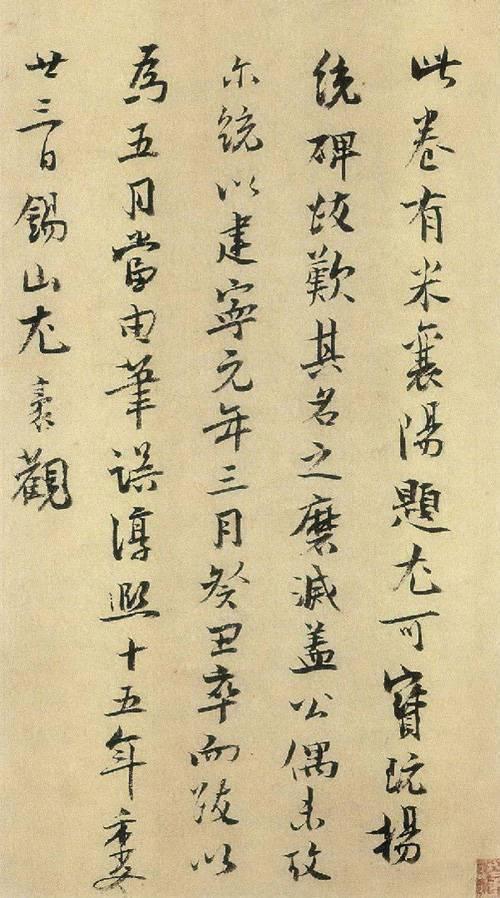 此卷有米襄陽題尤可寶玩楊
統碑跋歎其名之磨滅蓋公偶未攷
尔統以建寧元年三月癸丑卒而跋以
為五月當由筆誤淳熙十五年季夏
廿三日錫山尤袤觀